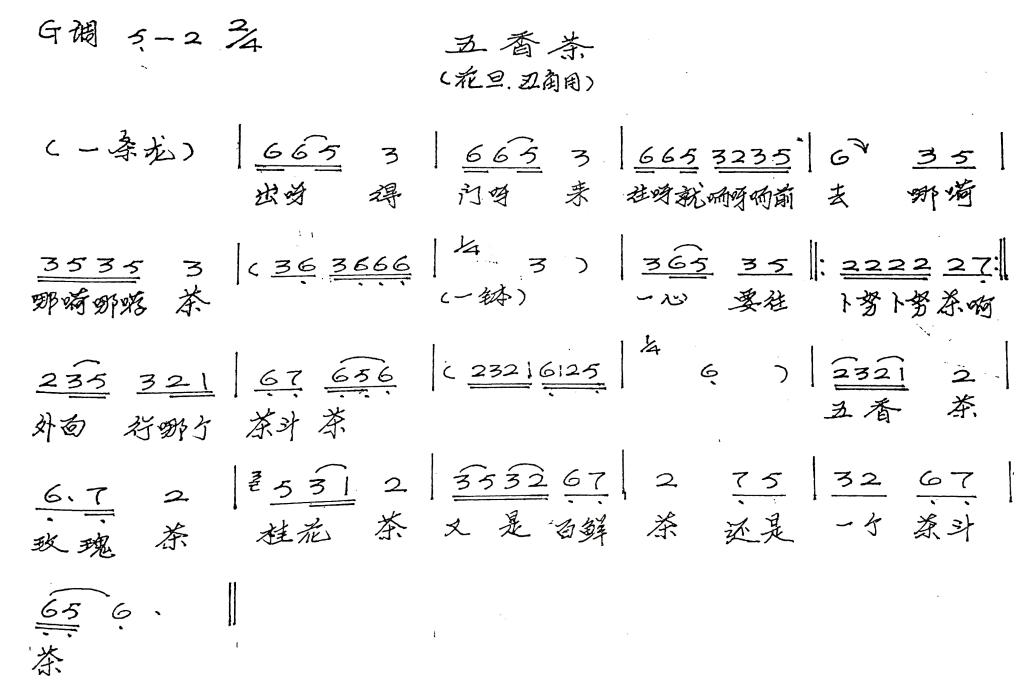 G调 5-2 2/4
五香茶
(花旦.丑角用)
(一条龙) | 665 3 | 665 3 | 665 3235 | 6 35 |
出呀 得 门呀 来 往呀就呐呀呐前 去 哪嗬
3535 3 | (36 3666 | 1/4 3 ) | 365 35 ‖: 2222 27 :‖
哪嗬哪嗬 茶 (一钵) 一心 要往 卜努卜努茶啊
235 321 | 67 656 | (2321 6125 | 1/4 6 ) | 2321 2 |
外面 行哪个 茶斗 茶 五香 茶
6.7 2 | 3 531 2 | 3532 67 | 2 75 | 32 67 |
玫瑰 茶 桂花 茶 又是 百鲜 茶 还是 一个 茶斗
65 6 . ‖
茶